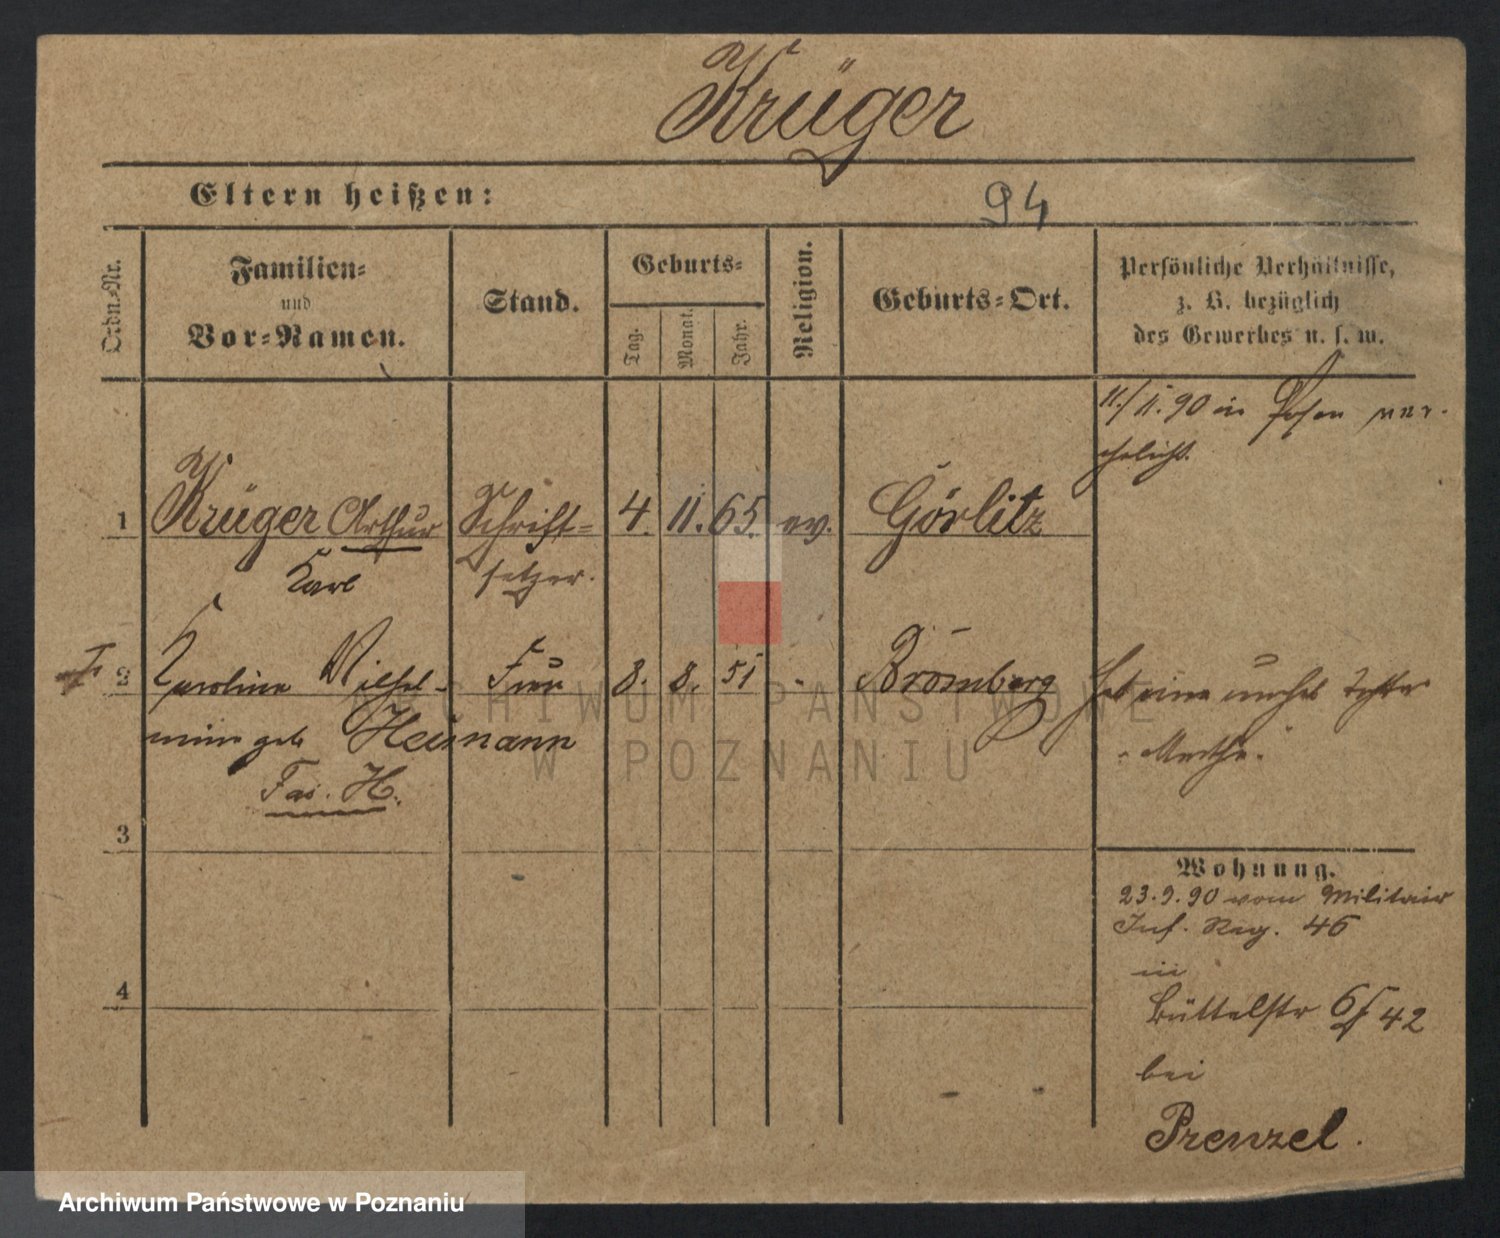 Krüger
Eltern heißen:
94
Ordn.-Nr.
Familien-
und
Vor-Namen.
Stand.
Geburts-
Tag.
Monat.
Jahr.
Religion.
Geburts-Ort.
Persönliche Verhältnisse,
z. B. bezüglich
des Gewerbes u. s. w.
11./11.90 in Posen ver-
ehelicht.
1 Krüger Arthur Schrift- 4. 11. 65. ev. Görlitz
Karl setzer.
2 Karoline Wilhel- Frau 8. 8. 51 - Bromberg hat eine unehel Tochter
mine geb Heimann
"Martha."
H.
3
4
Wohnung.
23.9.90 vom Militair
Inf. Reg. 46
in
Büttelstr 6/42
bei
Prenzel.
ARCHIWUM PAŃSTWOWE
W POZNANIU
Archiwum Państwowe w Poznaniu